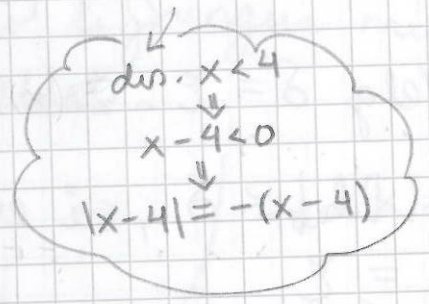 dus. x < 4
⇓
x - 4 < 0
⇓
|x - 4| = -(x - 4)